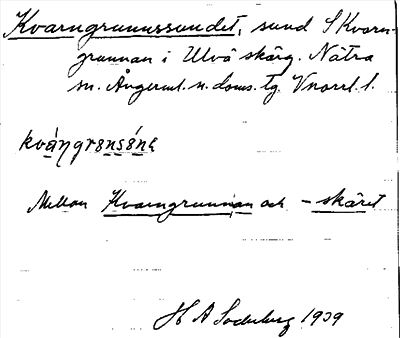 Kvarngrunnssundet, sund S Kvarn-
grunnan i Ulvö skärg. Nätra
sn. Ångerml. n. doms. tg. Vnorrl. l.
kváŋgrɐnsɐ́nɐ
Mellan Kvarngrunnan och -skäret
H A Söderberg 1939